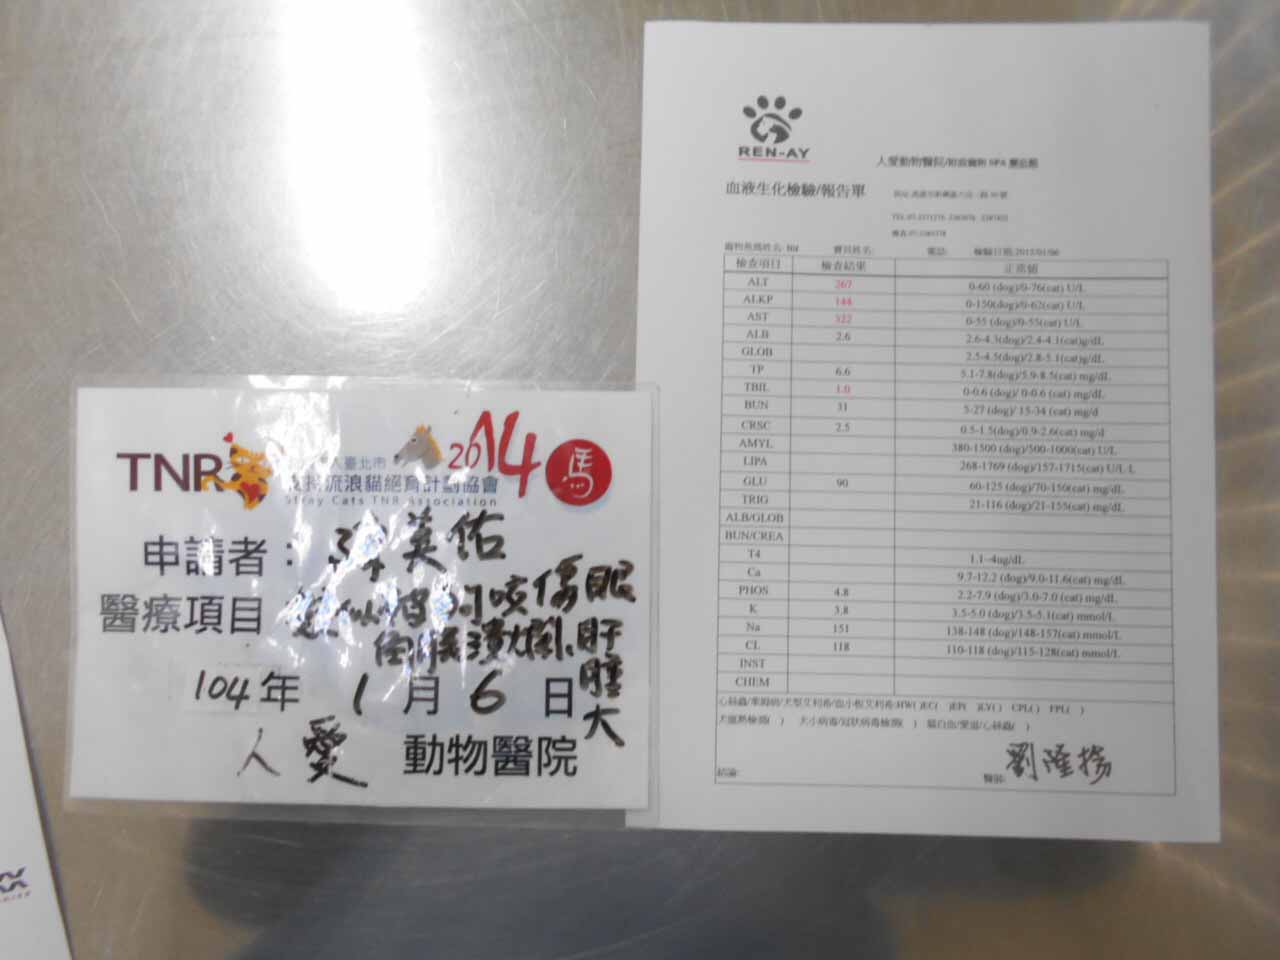 TNR
2014 馬
人臺北市
流浪貓絕育計劃協會
Stray Cats TNR Association
申請者： 英佑
醫療項目 疑似被狗咬傷 眼
潰爛 肝腫大
104年 1月6日
人愛 動物醫院
REN-AY
人愛動物醫院
血液生化檢驗/報告單
檢驗日期:2015/01/06
檢查項目 檢查結果 正常值
ALT 267 0-60 (dog)/0-76(cat) U/L
ALKP 144 0-150(dog)/0-62(cat) U/L
AST 322 0-55 (dog)/0-55(cat) U/L
ALB 2.6 2.6-4.3(dog)/2.4-4.1(cat)g/dL
GLOB 2.5-4.5(dog)/2.8-5.1(cat)g/dL
TP 6.6 5.1-7.8(dog)/5.9-8.5(cat) mg/dL
TBIL 1.0 0-0.6 (dog)/ 0-0.6 (cat) mg/dL
BUN 31 5-27 (dog)/ 15-34 (cat) mg/d
CRSC 2.5 0.5-1.5(dog)/0.9-2.6(cat) mg/d
AMYL 380-1500 (dog)/500-1000(cat) U/L
LIPA 268-1769 (dog)/157-1715(cat) U/L L
GLU 90 60-125 (dog)/70-150(cat) mg/dL
TRIG 21-116 (dog)/21-155(cat) mg/dL
ALB/GLOB
BUN/CREA
T4 1.1-4ug/dL
Ca 9.7-12.2 (dog)/9.0-11.6(cat) mg/dL
PHOS 4.8 2.2-7.9 (dog)/3.0-7.0 (cat) mg/dL
K 3.8 3.5-5.0 (dog)/3.5-5.1(cat) mmol/L
Na 151 138-148 (dog)/148-157(cat) mmol/L
CL 118 110-118 (dog)/115-128(cat) mmol/L
INST
CHEM
結論: 醫師: 劉隆揚